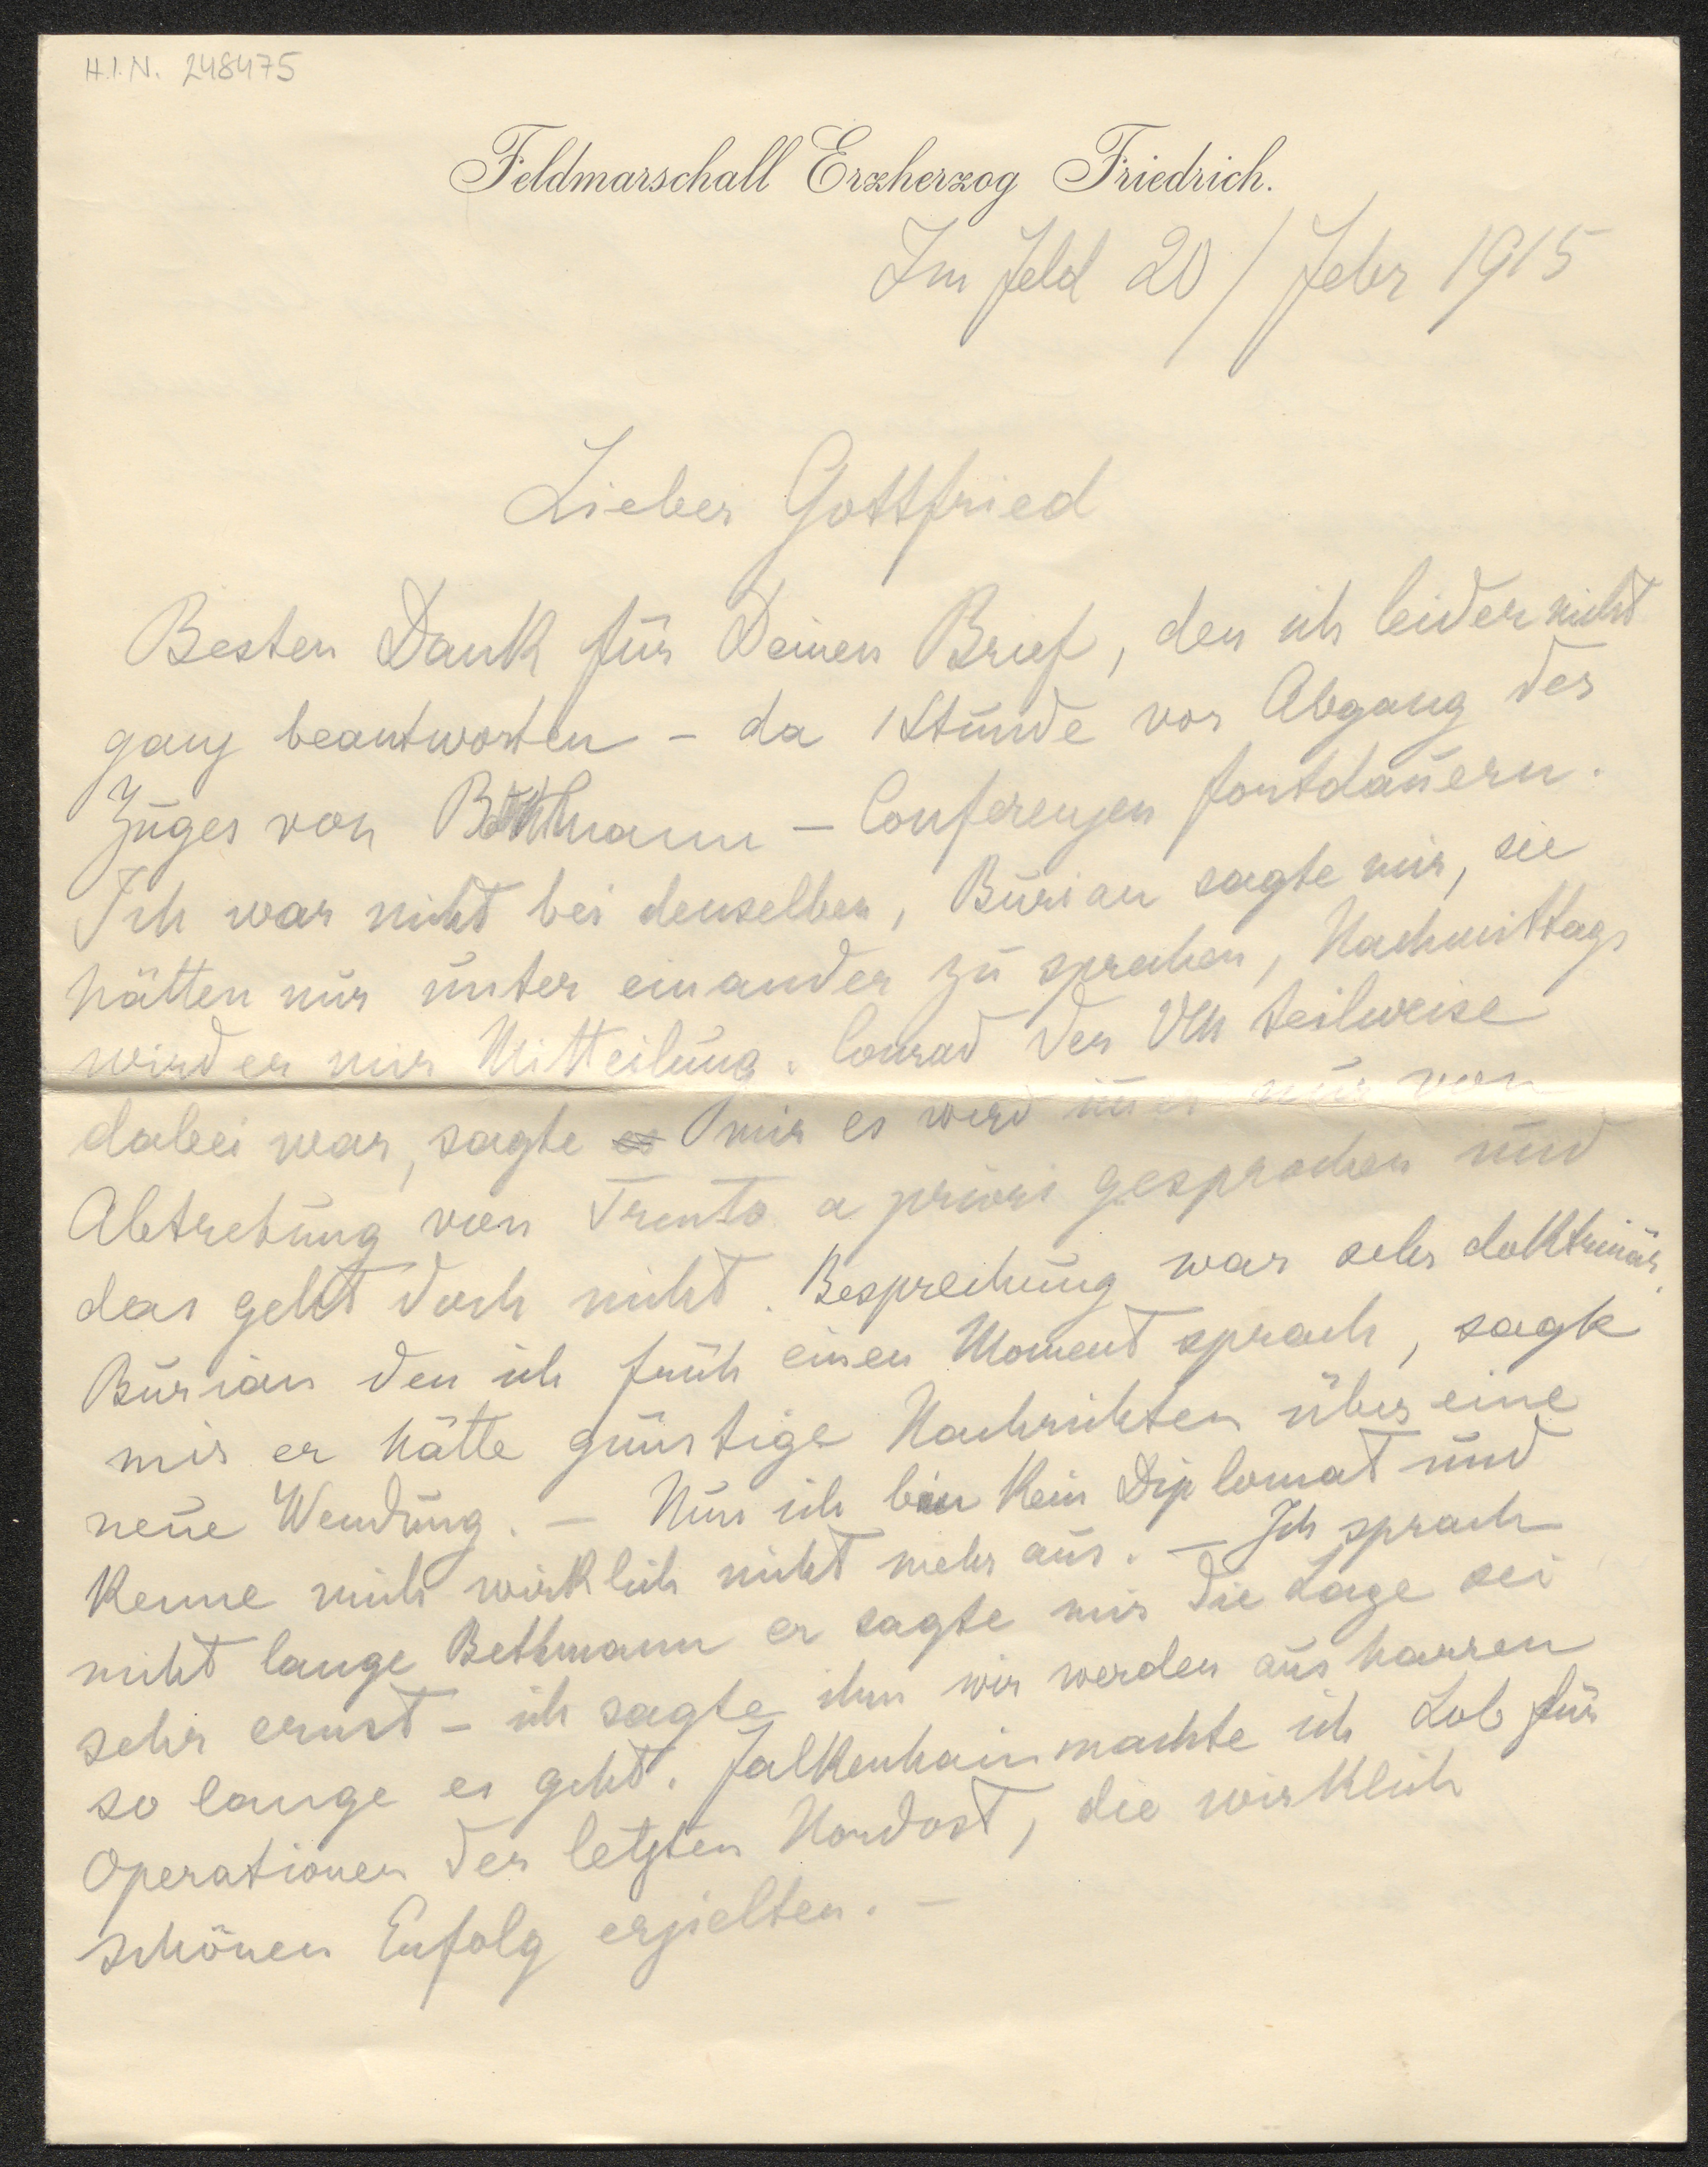 H.I.N. 248475
Feldmarschall Erzherzog Friedrich.
Im Feld 20/Febr 1915
Lieber Gottfried
Besten Dank für Deinen Brief, den ich leider nicht
ganz beantworten – da 1 Stunde vor Abgang des
Zuges von Bethmann – Conferenzen fortdauern.
Ich war nicht bei denselben, Burian sagte mir, sie
hätten nur unter einander zu sprechen, Nachmittags
wird er mir Mitteilung. Conrad der teilweise
dabei war, sagte mir es wird nur von
Abtretung von Trento a priori gesprochen und
das geht doch nicht. Besprechung war sehr doktrinär.
Burian den ich früh einen Moment sprach, sagte
mir er hätte günstige Nachrichten über eine
neue Wendung. – Nun ich bin kein Diplomat und
kenne mich wirklich nicht mehr aus. – Ich sprach
nicht lange Bethmann er sagte mir die Lage sei
sehr ernst – ich sagte ihm wir werden ausharren
so lange es geht. Falkenhain machte ich Lob für
Operationen der letzten Nordost, die wirklich
schönen Erfolg erzielten. –